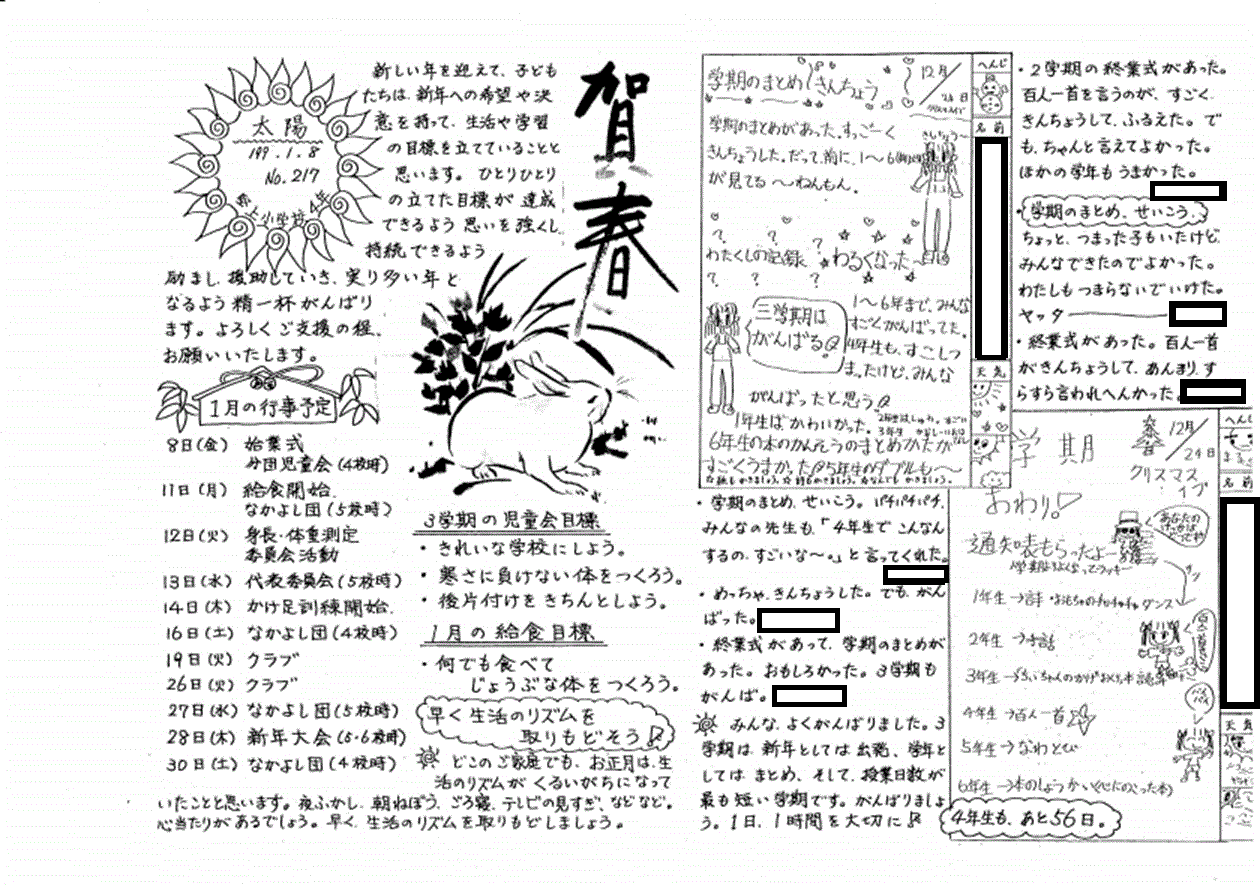 賀春
太陽
199.1.8
No.217
小学校 4年
新しい年を迎えて、子ども
たちは、新年への希望や決
意を持って、生活や学習
の目標を立てていることと
思います。ひとりひとり
の立てた目標が達成
できるよう思いを強くし
持続できるよう
励まし、援助していき、実り多い年と
なるよう精一杯がんばり
ます。よろしくご支援の程、
お願いいたします。
1月の行事予定
8日(金) 始業式
分団児童会(4校時)
11日(月) 給食開始
なかよし団(5校時)
12日(火) 身長・体重測定
委員会活動
13日(水) 代表委員会(5校時)
14日(木) かけ足訓練開始
16日(土) なかよし団(4校時)
19日(火) クラブ
26日(火) クラブ
27日(水) なかよし団(5校時)
28日(木) 新年大会(5・6校時)
30日(土) なかよし団(4校時)
3学期の児童会目標
・きれいな学校にしよう。
・寒さに負けない体をつくろう。
・後片付けをきちんとしよう。
1月の給食目標
・何でも食べて
じょうぶな体をつくろう。
早く生活のリズムを
取りもどそう
どこのご家庭でも、お正月は、生
活のリズムがくるいがちになって
いたことと思います。夜ふかし、朝ねぼう、ごろ寝、テレビの見すぎ、などなど。
心当たりがあるでしょう。早く、生活のリズムを取りもどしましょう。
学期のまとめ きんちょう
12月/24日
学期のまとめがあった。すっごーく
きんちょうした。だって、前に、1〜6
が見てる〜ねんもん。
わたくしの記録 わるくなった〜
三学期は
がんばる。
1〜6年まで、みんな
すごくがんばってた。
4年生も、すこしつ
まったけど、みんな
がんばったと思う
1年生ばかわいかった。
6年生の本のかんそうのまとめかたが
すごくうまかった 5年生のダブルも〜
へんじ
名前
天気
・2学期の終業式があった。
百人一首を言うのが、すごく
きんちょうして、ふるえた。で
も、ちゃんと言えてよかった。
ほかの学年もうまかった。
・学期のまとめ、せいこう。
ちょっと、つまった子もいたけど、
みんなできたのでよかった。
わたしもつまらないでいけた。
ヤッター
・終業式があった。百人一首
がきんちょうして、あんまり、す
らすら言われへんかった。
・学期のまとめ、せいこう。パチパチパチ、
みんなの先生も、「4年生でこんなん
するの、すごいな〜。」と言ってくれた。
・めっちゃ、きんちょうした。でも、がん
ばった。
・終業式があって、学期のまとめが
あった。おもしろかった。3学期も
がんば。
みんな、よくがんばりました。3
学期は、新年としては出発、学年と
しては まとめ、そして、授業日数が
最も短い学期です。がんばりましょ
う。1日、1時間を大切に
学期
おわり。
12月/24日
クリスマス
イブ
通知表もらったよー
1年生→詩・おもちゃのチャチャチャ ダンス
2年生→手話
3年生→ちいちゃんのかげおくり
4年生→百人一首
5年生→なわとび
6年生→本のしょうかい
へんじ
名前
天気
4年生も、あと56日。